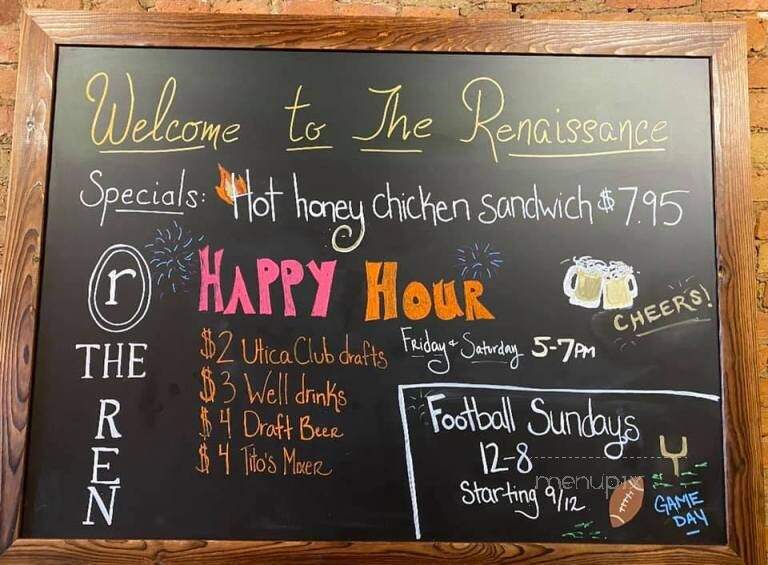 Welcome to The Renaissance
Specials: Hot honey chicken sandwich $7.95
r
THE
REN
HAPPY HOUR
Friday & Saturday 5-7PM
$2 Utica Club drafts
$3 Well drinks
$4 Draft Beer
$4 Tito's Mixer
CHEERS!
Football Sundays
12-8
Starting 9/12
GAME
DAY
menupix